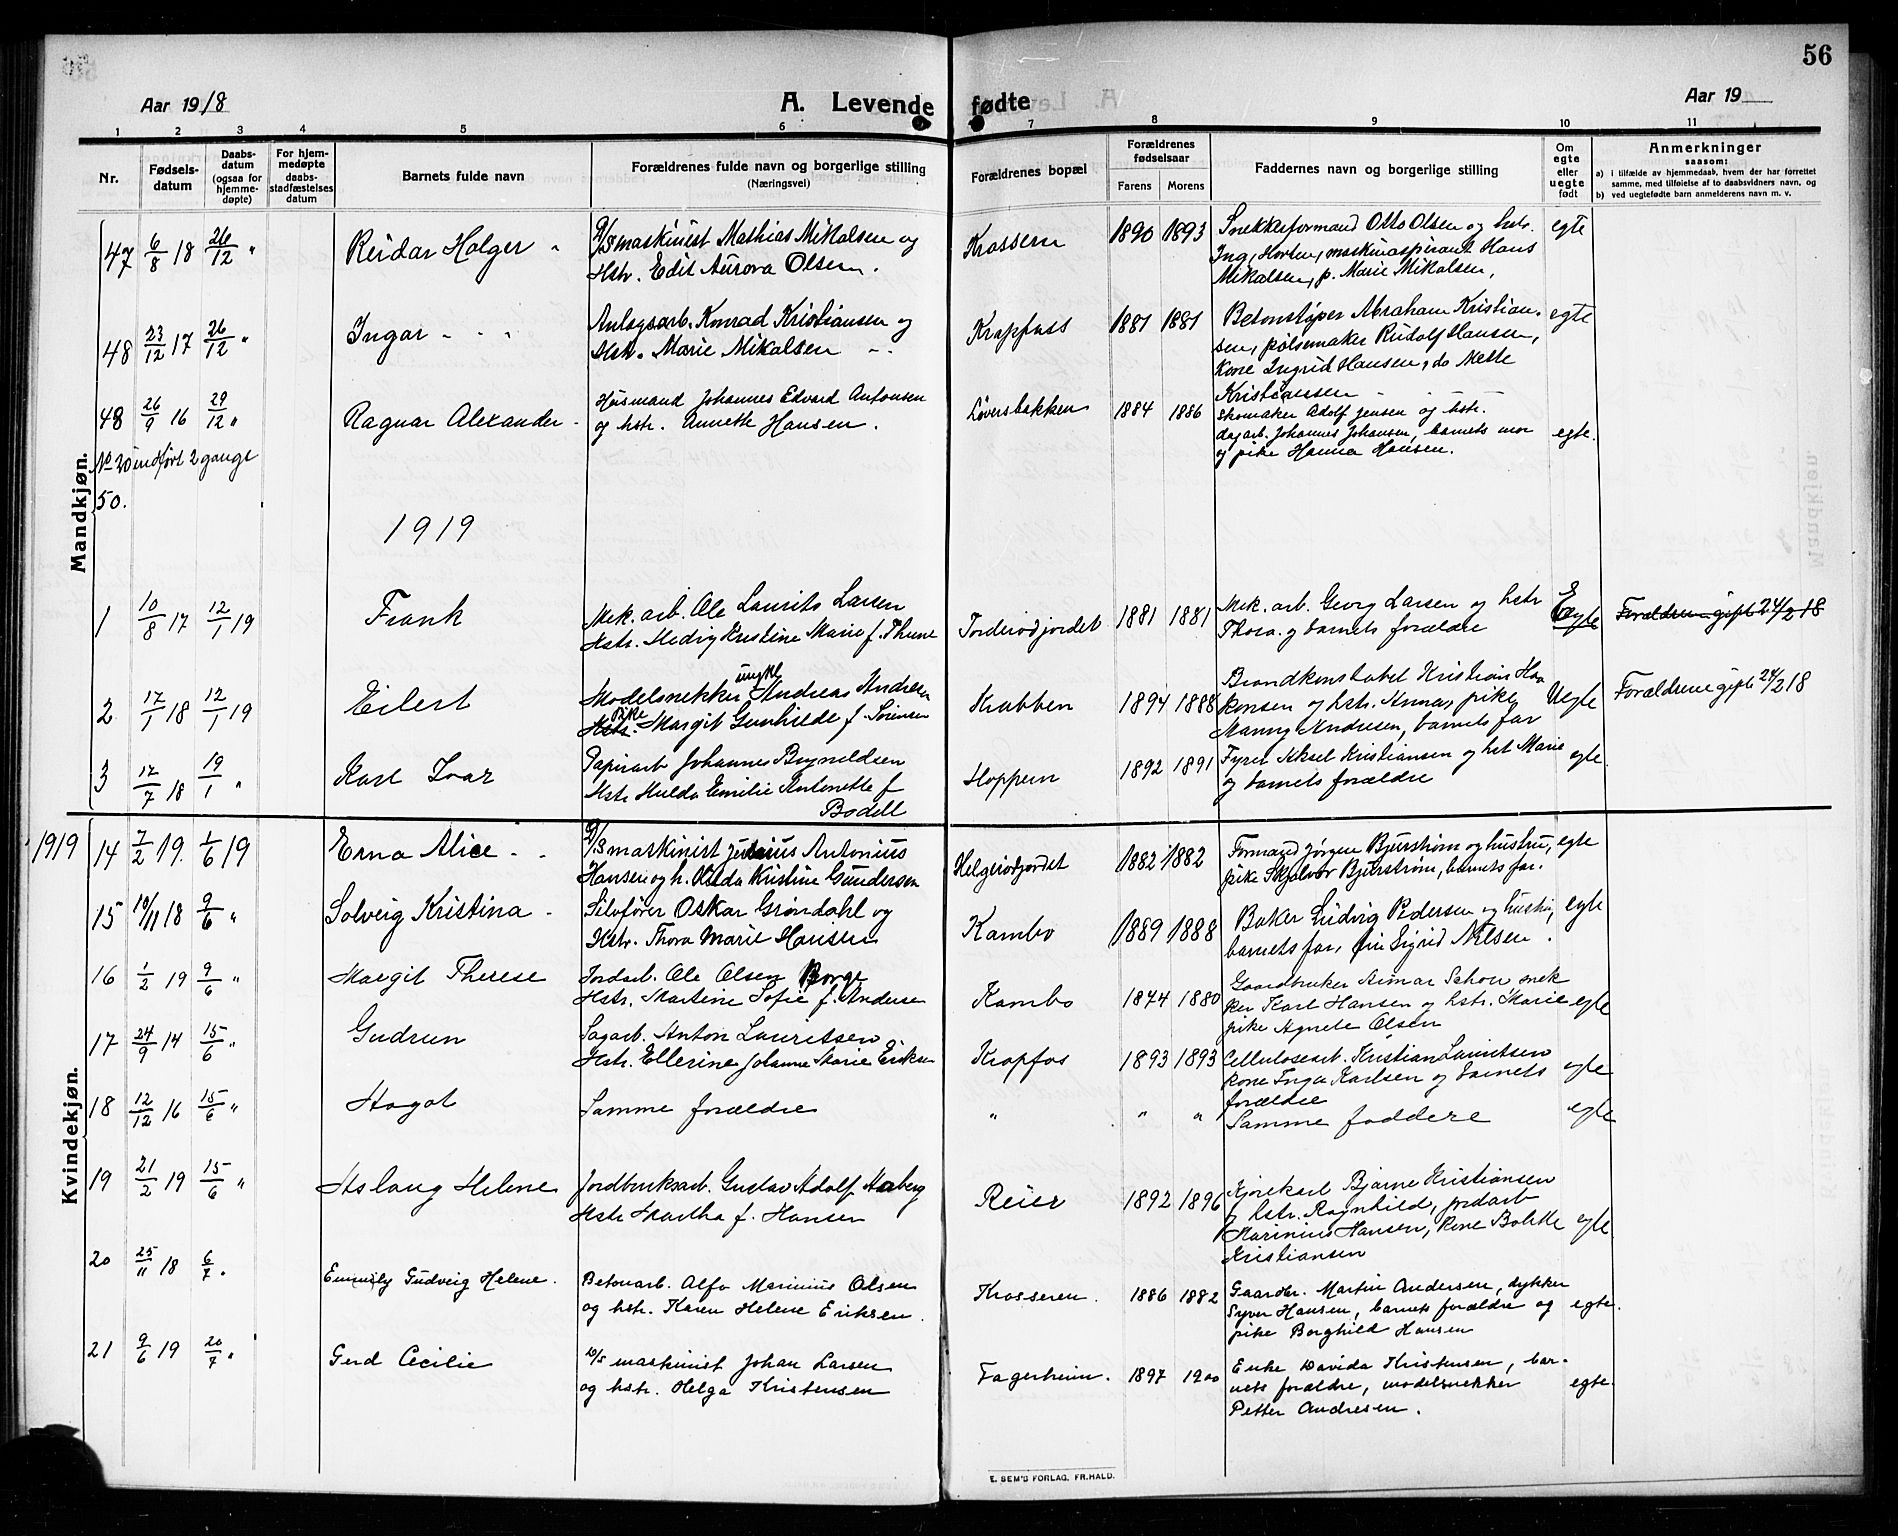 56
Aar 1918 A. Levende fødte Aar 19
1 2 3 4 5 6 7 8 9 10 11
Nr. Fødsels-datum Daabs-datum (ogsaa for hjemme-døpte) For hjem-medøpte daabs-stadfæstelses datum Barnets fulde navn Forældrenes fulde navn og borgerlige stilling (Næringsvei) Forældrenes bopæl Forældrenes fødselsaar Farens Morens Faddernes navn og borgerlige stilling Om egte eller uegte født Anmerkninger
saasom:
a) i tilfælde av hjemmedaab, hvem der har forrettet samme, med tilføielse af to daabsvidners navn, og
b) ved uegtefødte barn anmelderens navn m. v.
Mandkjøn.
47 6/8 18 26/12 " Reidar Holger D/S maskinist Mathias Mikalsen og Krossern 1890 1893 Snekkerformand Otto Olsen og hstr. egte
Hstr. Edit Aurora Olsen. Ing, Horten, maskinaspirant Hans
Mikalsen, p. Marie Mikalsen,
48 23/12 17 26/12 " Ingar Anlægsarb. Konrad Kristiansen og Krapfoss 1881 1881 Betonstøper Abraham Kristian- egte
Hstr. Marie Mikalsen sen, pølsemaker Rudolf Hansen,
Kone Ingrid Hansen, do Mette
Kristiansen
48 26/9 16 29/12 " Ragnar Alexander Huismand Johannes Edvard Antonsen Løversbakken 1884 1886 Skomaker Adolf Jensen og hstr.
og hstr. Annette Hansen. dagarb. Johannes Johansen, barnets mor egte.
og pike Hanna Hansen.
No 20 indført 2 gange
50.
1919
1 10/8 17 12/1 19 Frank Mek. arb. Ole Laurits Larsen Torderødjordet 1881 1881 Mek. arb. Georg Larsen og hstr Egte Forældrene gift 24/2 18
Hstr. Hedvig Kristine Marie f. Thune Thora og barnets forældre
2 17/1 18 12/1 19 Eilert Modelsnekker ungk. Andreas Andresen Krabben 1894 1888 Brandkonstabel Kristian Haa Uegte Forældrene gift 24/2 18
Hstr. pike Margit Gunhilde f. Sørensen konsen og hstr. Anna, pike
Nanny Andresen, barnets far
3 17/7 18 19/1 " Karl Ivar Papirarb Johannes Brynildsen Hoppern 1892 1891 Fyrer Aksel Kristiansen og hst Marie egte.
Hstr Hulda Emilie Antonette f og barnets forældre
Bodell
Kvindekjøn.
1919 14 7/2 19. 1/6 19 Erna Alice D/S maskinist Julius Antonius Helgerødjordet 1882 1882 Formand Jørgen Bjurstrøm og hustru, egte
Hansen og h. Olilda Kristine Gundersen pike Skjalvor Bjurstrøm, barnets far.
15 10/11 18 9/6 " Solveig Kristina Silofører Oskar Grøndahl og Kambo 1889 1888 Baker Ludvig Pedersen og hustru, egte
Hstr. Thora Marie Hansen barnets far, frk Sigrid Nilsen.
16 1/2 19 9/6 " Margit Therese Jordarb. Ole Olsen Borge Kambo 1874 1880 Gaardbruker Aimar Schou snek
Hstr. Martine Sofie f. Anderse ker Karl Hansen og hstr. Marie egte
pike Agnete Olsen
17 24/9 14 15/6 " Gudrun Sagarb. Anton Lauritsen Krapfos 1893 1893 Cellulosearb. Kristian Lauritsen egte
Hstr. Ellerine Johanne Marie Eriksen kone Inga Karlsen og barnets
forældre
18 12/12 16 15/6 " Hagot Samme forældre " " " Samme faddere egte
19 21/2 19 15/6 " Aslaug Helene Jordbruksarb. Gustav Adolf Aaberg Reier 1892 1896 Kjørekarl Bjarne Kristiansen
Hstr Martha f. Hansen og hstr. Ragnhild, jordarb
Marinius Hansen, kone Bolette egte
Kristiansen
20 25/11 18 6/7 . Emmily Gudveig Helene. Betonarb. Alfr Marinius Olsen Krosseren. 1886 1882 Gaardbr. Martin Andersen, dykker
og hstr. Karen Helene Eriksen. Syver Hansen, barnets forældre og egte.
pike Borghild Hansen
21 9/6 19 20/7 " Gerd Cecilie D/S maskinist Johan Larsen Fagerheim. 1897 1900 Enke Davida Kristensen, bar-
og hstr. Helga Kristensen nets forældre, modelsnekker egte.
Petter Andresen.
E. SEM'S FORLAG, FR.HALD.